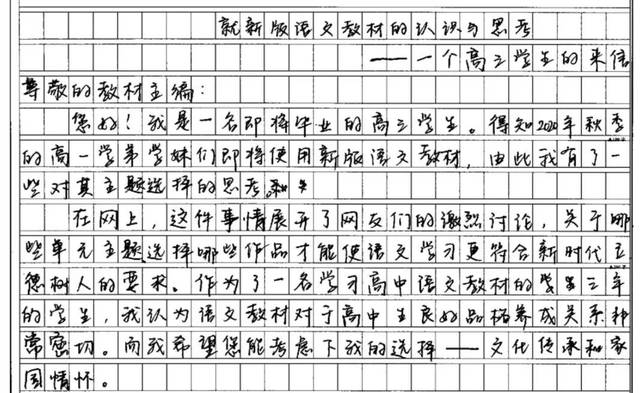 就新版语文教材的认识与思考
——一个高三学生的来信
尊敬的教材主编：
您好！我是一名即将毕业的高三学生。得知2020年秋季
的高一学弟学妹们即将使用新版语文教材，由此我有了一
些对其主题选择的思考。
在网上，这件事情展开了网友们的激烈讨论，关于哪
些单元主题，选择哪些作品才能使语文学习更符合新时代立
德树人的要求。作为了一名学习高中语文教材的三年
的学生，我认为语文教材对于高中生良好品格养成关系非
常密切。而我希望您能考虑下我的选择——文化传承和家
国情怀。